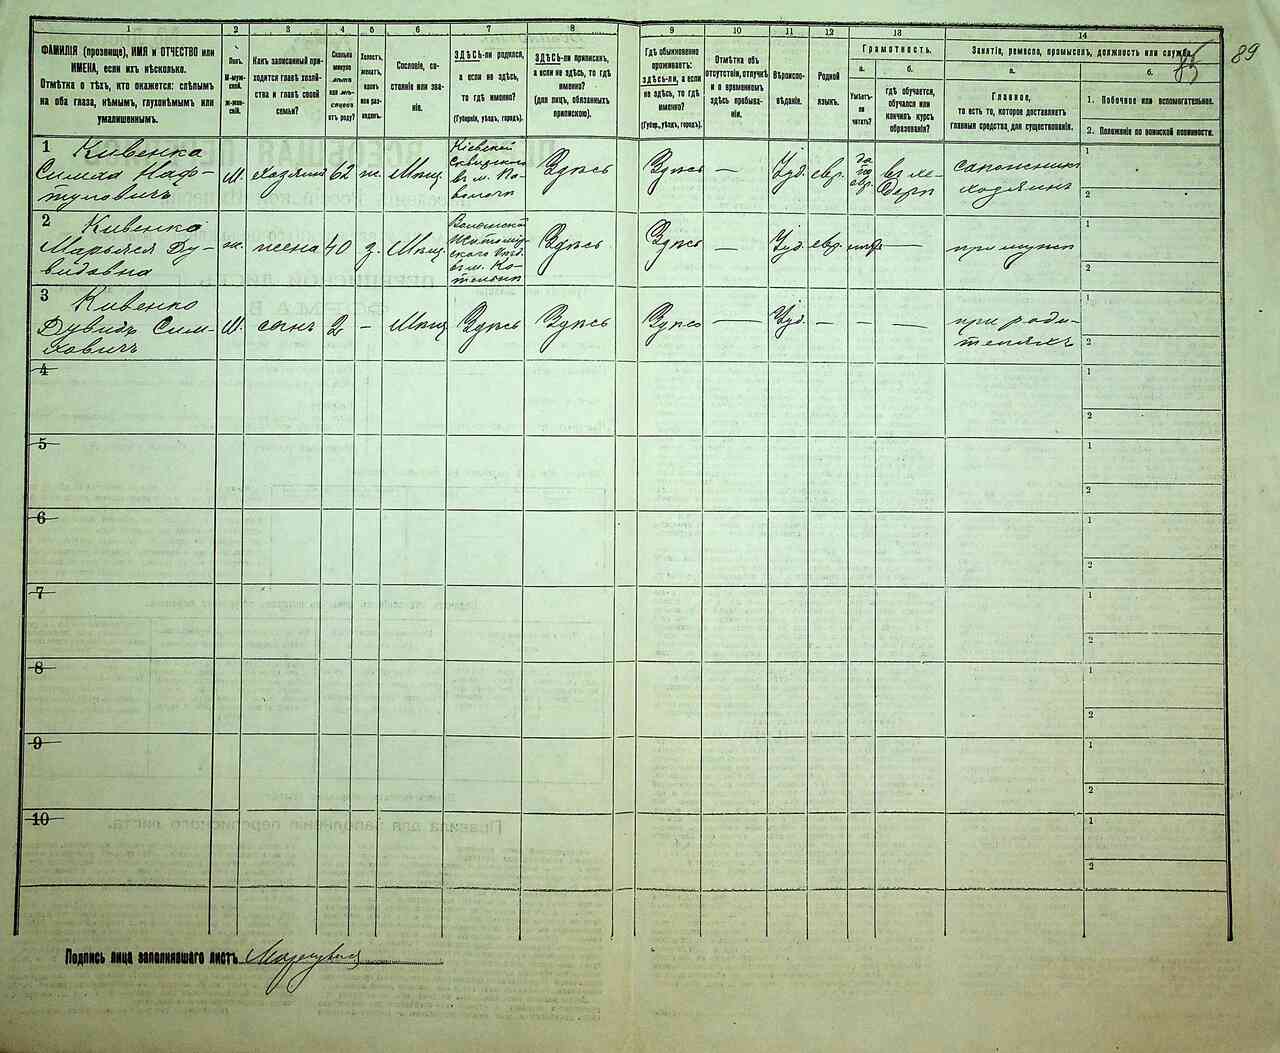 89
1
2
3
4
5
6
7
8
9
10
11
12
13
14
ФАМИЛІЯ (прозвище), ИМЯ и ОТЧЕСТВО или
ИМЕНА, если ихъ нѣсколько.
Отмѣтка о тѣхъ, кто окажется: слѣпымъ
на оба глаза, нѣмымъ, глухонѣмымъ или
умалишеннымъ.
Полъ.
М-муж-
ской.
ж-жен-
скій.
Какъ записанный при-
ходится главѣ хозяй-
ства и главѣ своей
семьи?
Сколько
минуло
лѣтъ
или мѣ-
сяцевъ
отъ роду?
Холостъ,
женатъ,
вдовъ
или раз-
веденъ.
Сословіе, со-
стояніе или зва-
ніе.
ЗДѢСЬ-ли родился,
а если не здѣсь,
то гдѣ именно?
(Губернія, уѣздъ, городъ).
ЗДѢСЬ-ли приписанъ,
а если не здѣсь, то гдѣ
именно?
(для лицъ, обязанныхъ
припискою).
Гдѣ обыкновенно
проживаетъ:
здѣсь-ли, а если
не здѣсь, то гдѣ
именно?
(Губер., уѣздъ, городъ).
Отмѣтка объ
отсутствіи, отлучкѣ
и о временномъ
здѣсь пребыва-
ніи.
Вѣроиспо-
вѣданіе.
Родной
языкъ.
Грамотность.
а.
Умѣетъ-
ли
читать?
б.
гдѣ обучается,
обучался или
кончилъ курсъ
образованія?
Занятіе, ремесло, промыселъ, должность или служба.
а.
Главное,
то есть то, которое доставляетъ
главныя средства для существованія.
б.
1. Побочное или вспомогательное.
2. Положеніе по воинской повинности.
1 Кивенко
Симха Наф-
туловичъ
М. хозяинъ 62 ж. Мѣщ.
Кіевской
Сквирского
въ м. Па-
волочи
Здѣсь Здѣсь — Іуд. евр.
въ хе-
дерѣ
хозяинъ
1
2
2 Кивенко
Марьяся Ду-
видовна
ж. жена 40 з. Мѣщ.
Волынской
Житомір-
ского уѣзд.
въ м. Ко-
тельни
Здѣсь Здѣсь — Іуд. евр. — при мужѣ
1
2
3 Кивенко
Дувидъ Сим-
ховичъ
М. сынъ 2 - Мѣщ Здѣсь Здѣсь Здѣсь — Іуд. — — —
при роди-
теляхъ
1
2
4
1
2
5
1
2
6
1
2
7
1
2
8
1
2
9
1
2
10
1
2
Подпись лица заполнившаго листъ